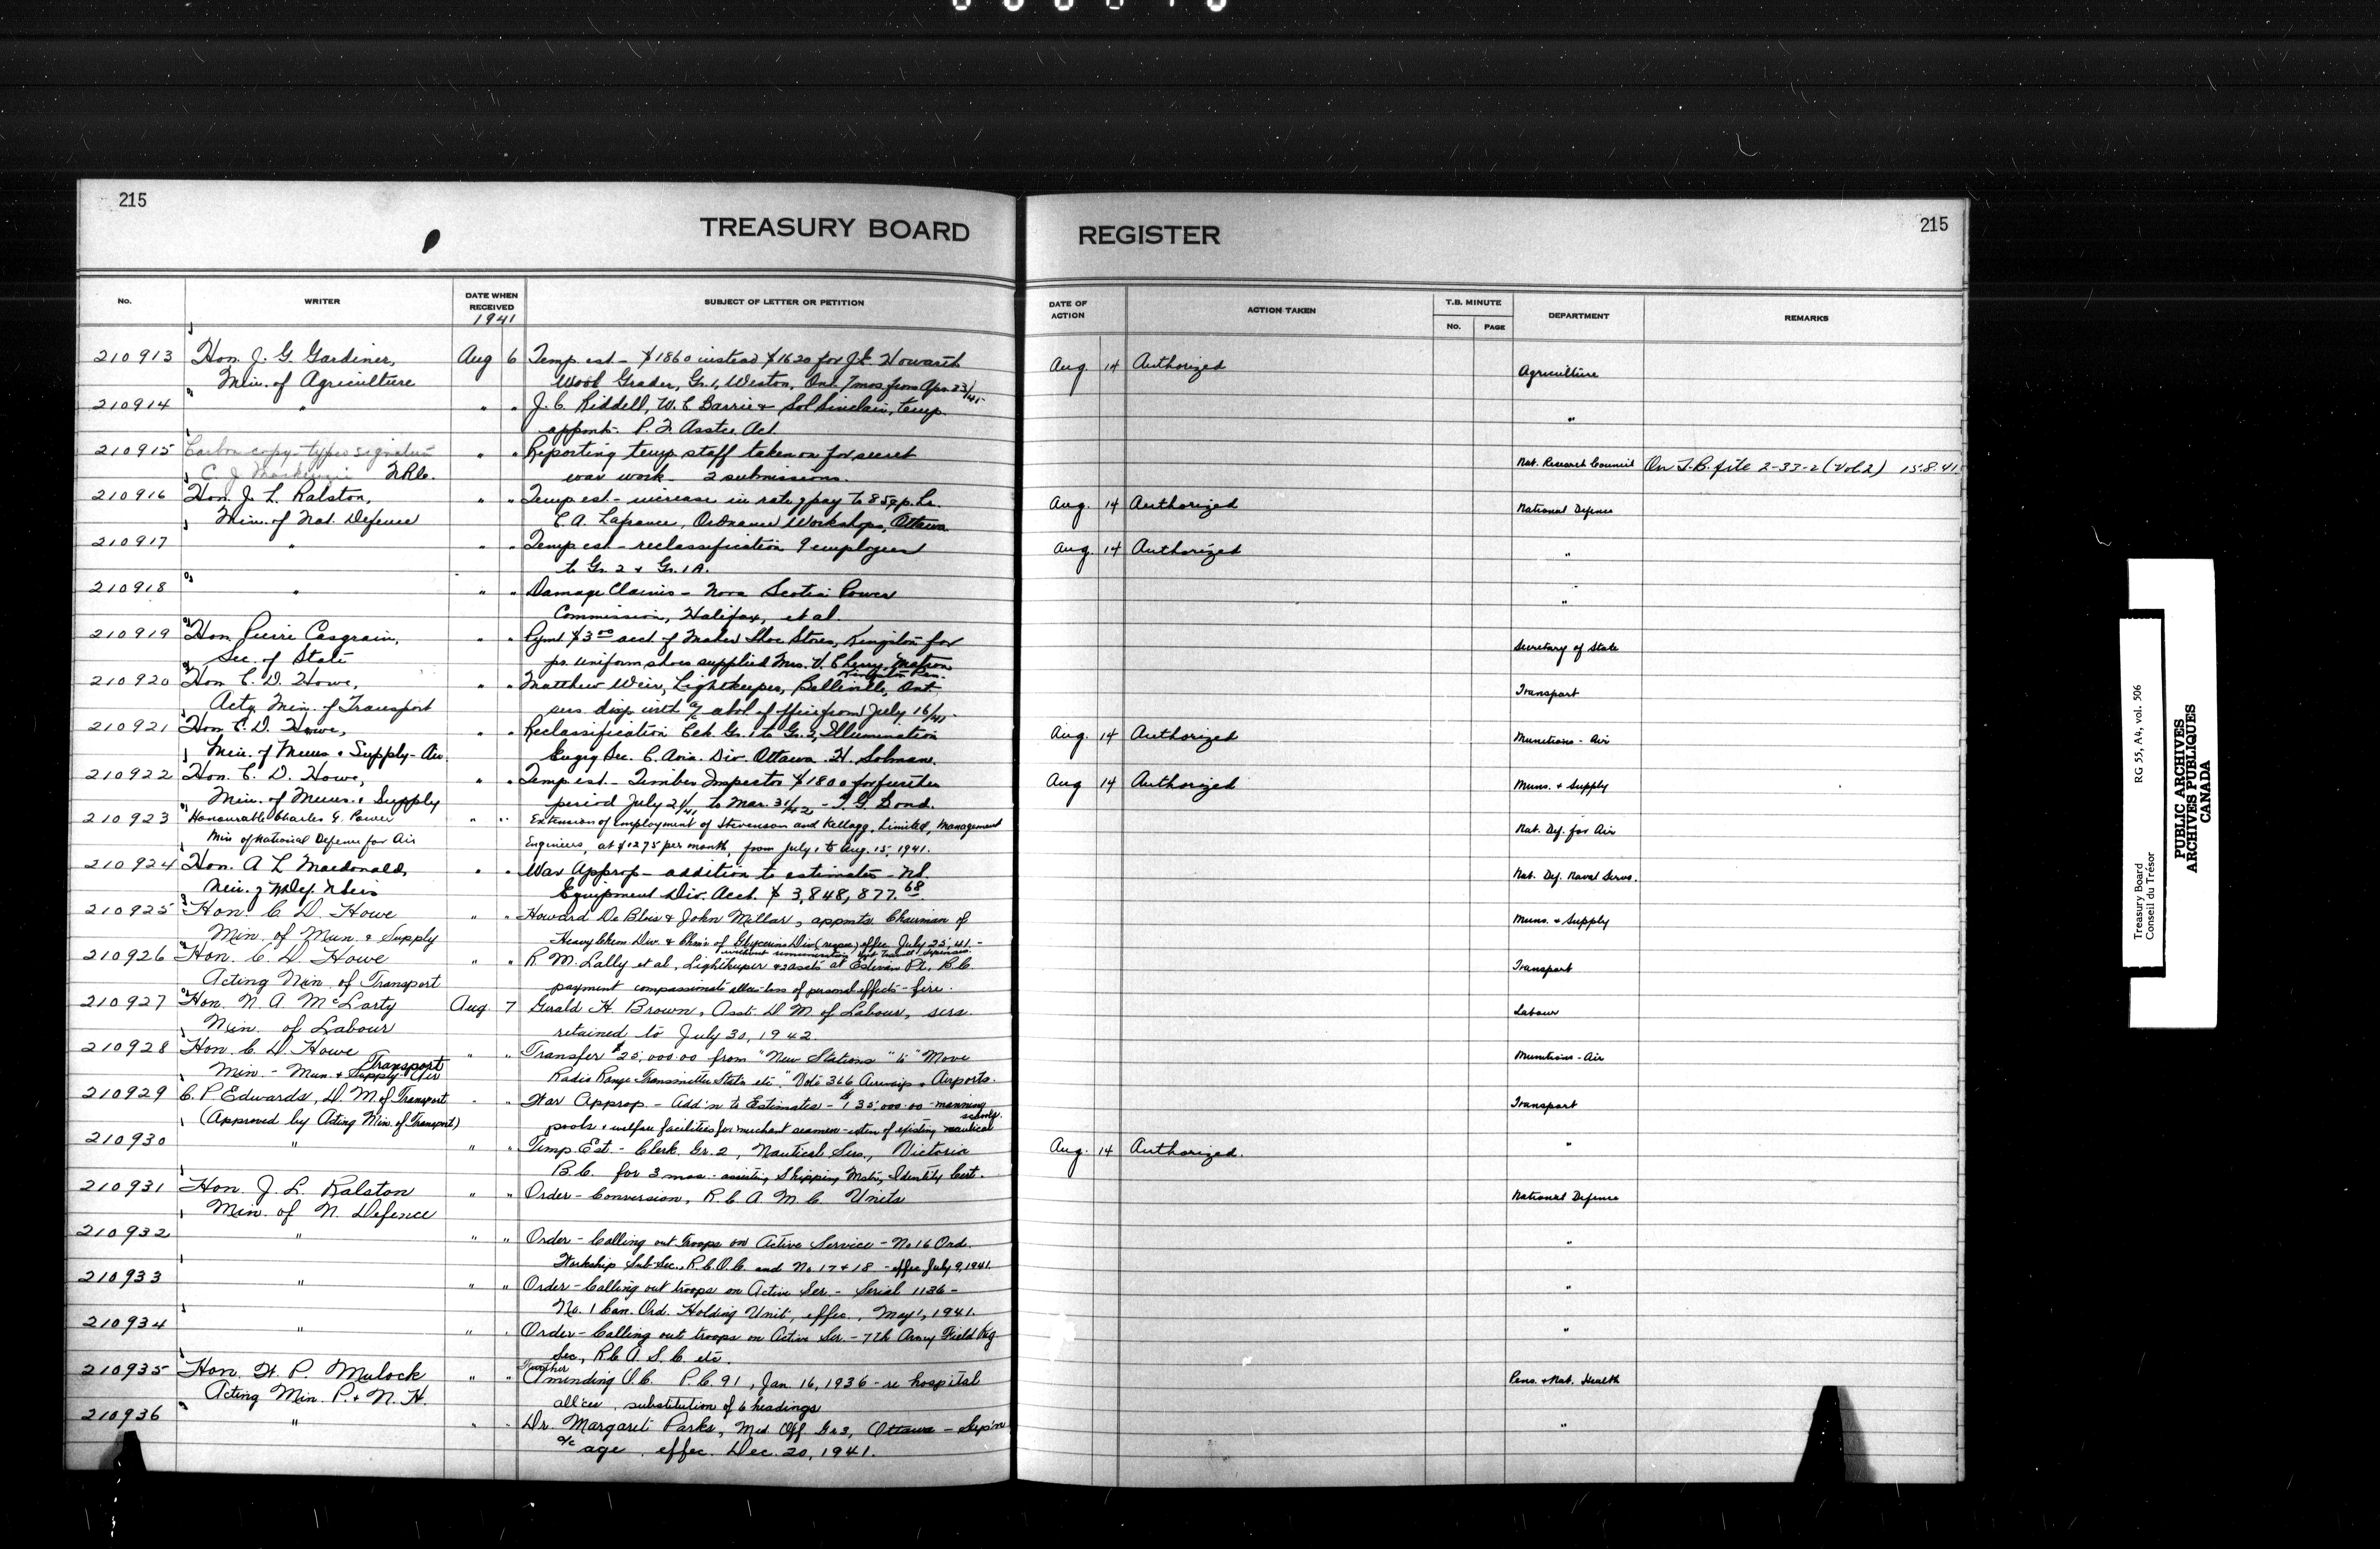 215
TREASURY BOARD
No.
WRITER
DATE WHEN
RECEIVED
1941
SUBJECT OF LETTER OR PETITION
210913 Hon. J. G. Gardiner, Aug 6 Temp est - $1860 instead $1620 for J. Howarth
Min. of Agriculture Wool Grader, Gr. 1, Weston, Ont. 7 mos. from Apr. 23/41
210914 " " " J. C. Riddell, W. C. Barrie & Sol Sinclair, temp.
appnts. P. F. Asstce. Act.
210915 Carbon copy - typed signature " " Reporting temp staff taken on for secret
C. J. Mackenzie N.R.C. war work - 2 submissions.
210916 Hon. J. L. Ralston, " " Temp est - increase in rate of pay to 85¢ p. hr.
Min. of Nat. Defence C. A. Lafrance, Ordnance Workshops, Ottawa
210917 " " " Temp est - reclassification 9 employees
to Gr. 2 & Gr. 1A.
210918 " " " Damage Claims - Nova Scotia Power
Commission, Halifax, et al.
210919 Hon. Pierre Casgrain, " " Pymt $3.00 acct of Maher Shoe Stores, Kingston for
Sec. of State pr. uniform shoes supplied Mrs. V. Cherry, Matron
Kingston Pen.
210920 Hon C. D. Howe, " " Matthew Weir, Lightkeeper, Belleville, Ont.
Actg. Min. of Transport sers disp with a/c abol of office from July 16/41
210921 Hon C. D. Howe, " " Reclassification Gr. 1 to Gr. 2, Illumination
Min. of Muns & Supply - Air Engrg Sec. C. Avia. Div Ottawa H.
210922 Hon. C. D. Howe, " " Temp est - Timber Inspector $1800 for further
Min. of Muns. & Supply period July 21/41 to Mar. 31/42 - Bond.
210923 Honourable Charles G. Power " " Extension of employment of Stevenson and Kellogg, Limited, Management
Min of National Defence for Air Engineers, at $1275 per month, from July 1 to Aug. 15, 1941.
210924 Hon. A L Macdonald, " " War Approp - addition to estimates - NS.
Min. of N Def. N Sers Equipment Div. Acct. $ 3,848,877.68
210925 Hon. C. D. Howe " " Howard De Blois & John Millar, appnts Chairman of
Min. of Mun. & Supply Heavy Chem. Div. & Chm'n of Glycerine Div (respec) effec July 25, 41 -
without remuneration but travel expenses.
210926 Hon. C. D. Howe " " R. M. Lally et al, Lightkeeper & 2 assts at Estevan Pt., B.C.
Acting Min. of Transport payment compassionate allce - loss of personal effects - fire.
210927 Hon. N. A. McLarty Aug. 7 Gerald H. Brown, Asst. D. M. of Labour, sers.
Min. of Labour retained to July 30, 1942.
210928 Hon. C. D. Howe " " Transfer $25,000.00 from "New Stations" to "Move
Min. - Mun. & Supply - Air Transport Radio Range Transmitter Statn etc." Vote 366 Airways & Airports.
210929 C. P. Edwards, D. M. of Transport " " War Approp. - Add'n to Estimates - $135,000.00 - manning
(Approved by Acting Min. of Transport) pools & welfare facilities for merchant seamen - exten of existing nautical
schools.
210930 " " " Temp Est. - Clerk Gr. 2, Nautical Sers., Victoria
B.C. for 3 mos. - assisting Shipping Mstr, Identity Cert.
210931 Hon. J. L. Ralston " " Order - Conversion, R. C. A. M. C. Units
Min. of N. Defence
210932 " " " Order - Calling out troops on Active Service - No 16 Ord.
Workshop Sub-Sec., R.C.O.C. and No 17 & 18 - effec July 9, 1941.
210933 " " " Order - Calling out troops on Active Ser. - Serial 1136 -
No. 1 Can. Ord. Holding Unit, effec., May 1, 1941.
210934 " " " Order - Calling out troops on Active Ser. - 7th Army Field Reg
Sec, R.C.A.S.C. etc.
210935 Hon. W. P. Mulock " " Further Amending O.C. P.C. 91, Jan. 16, 1936 - re hospital
Acting Min. P. & N. H. all'ces, substitution of 6 headings
210936 " " " Dr. Margaret Parks, Med. Off. Gr 3, Ottawa - Sup'n
a/c age, effec. Dec. 20, 1941.
215
REGISTER
DATE OF
ACTION
ACTION TAKEN
T.B. MINUTE
No. PAGE
DEPARTMENT
REMARKS
Aug. 14 Authorized Agriculture
"
Nat. Research Council On T.B. file 2-33-2 (Vol 2) 15.8.41
Aug. 14 Authorized National Defence
Aug. 14 Authorized "
"
Secretary of State
Transport
Aug. 14 Authorized Munitions - Air
Aug 14 Authorized Muns. & Supply
Nat. Def. for Air
Nat. Def. Naval Servs.
Muns. & Supply
Transport
Labour
Munitions - Air
Transport
Aug. 14 Authorized. "
National Defence
"
"
"
Pens. & Nat. Health
"
Treasury Board RG 55, A4, vol. 506
Conseil du Trésor
PUBLIC ARCHIVES
ARCHIVES PUBLIQUES
CANADA